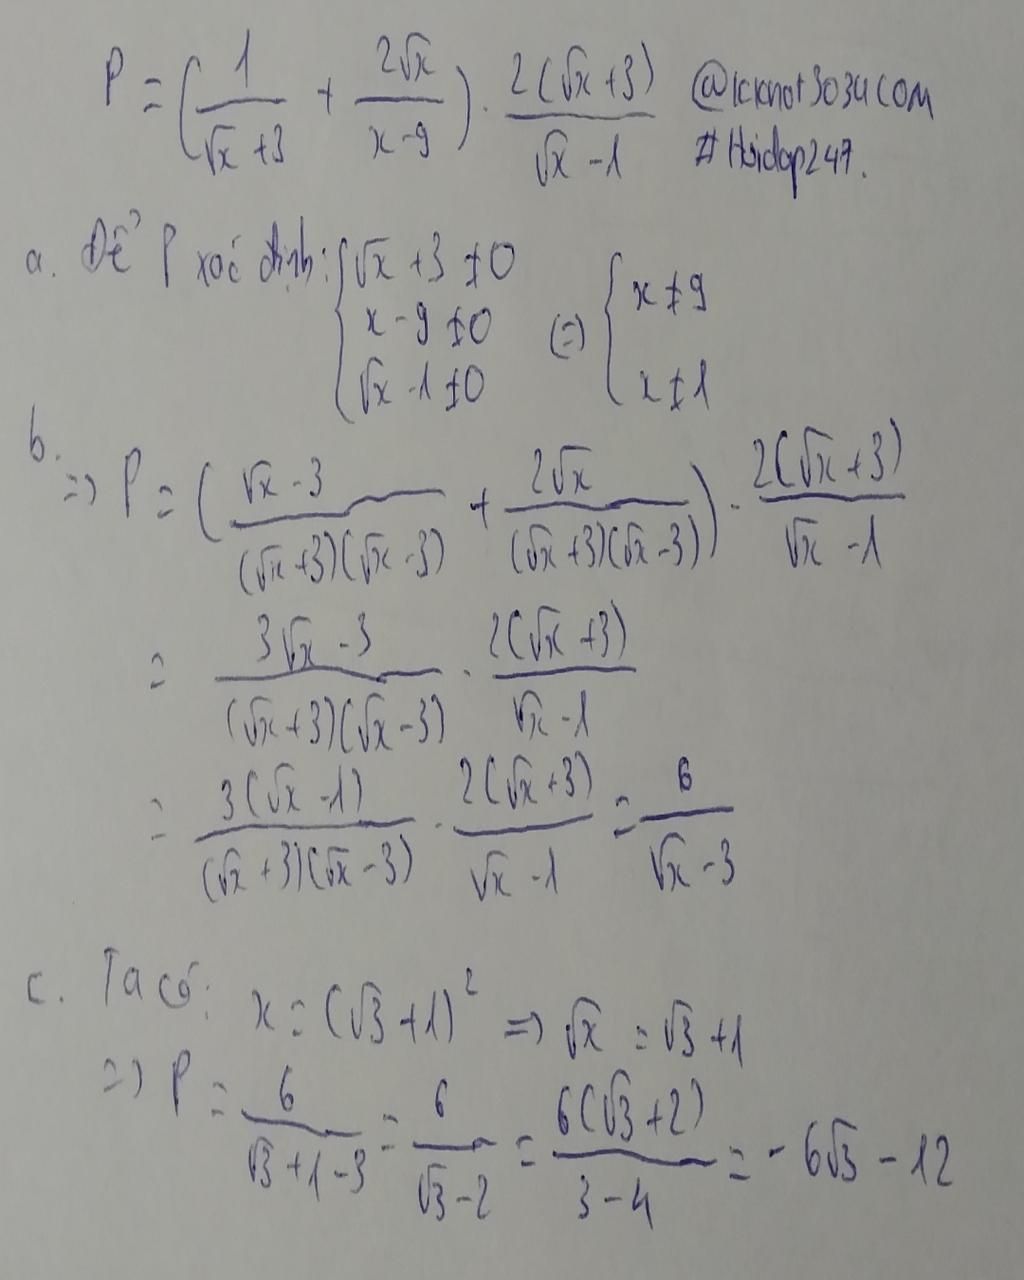 P = (1/(√x + 3) + 2√x/(x - 9)) . 2(√x + 3)/(√x - 1) @kknot3034com
#Hoidap247.
a. Để P xác định: { √x + 3 ≠ 0
x - 9 ≠ 0
√x - 1 ≠ 0
(=) { x ≠ 9
x ≠ 1
b.
=> P = ((√x - 3)/((√x + 3)(√x - 3)) + 2√x/((√x + 3)(√x - 3))) . 2(√x + 3)/(√x - 1)
= (3√x - 3)/((√x + 3)(√x - 3)) . 2(√x + 3)/(√x - 1)
= 3(√x - 1)/((√x + 3)(√x - 3)) . 2(√x + 3)/(√x - 1) = 6/(√x - 3)
c. Ta có: x = (√3 + 1)² => √x = √3 + 1
=> P = 6/(√3 + 1 - 3) = 6/(√3 - 2) = 6(√3 + 2)/(3 - 4) = - 6√3 - 12